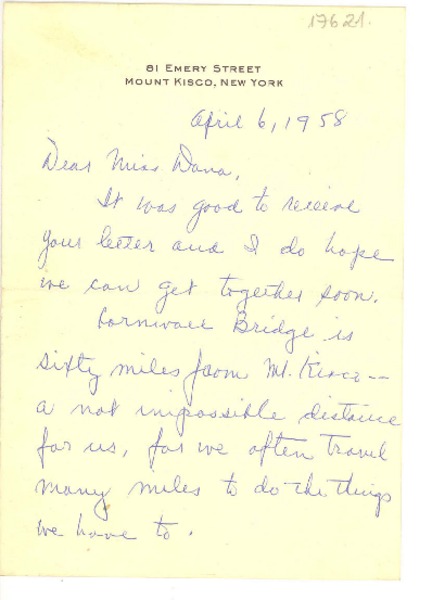 17621.
81 EMERY STREET
MOUNT KISCO, NEW YORK
April 6, 1958
Dear Miss Dana,
It was good to receive
your letter and I do hope
we can get together soon.
Cornwall Bridge is
sixty miles from Mt. Kisco--
a not impossible distance
for us, for we often travel
many miles to do the things
we have to.